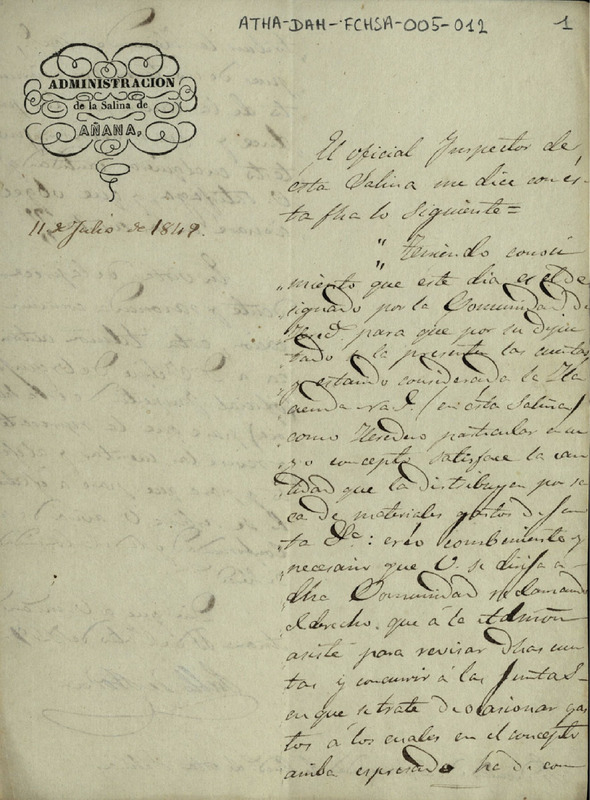 ATHA-DAH-FCHSA-005-012
1
ADMINISTRACION
de la Salina de
AÑANA,
11 de Julio de 1849.
El oficial Inspector de
esta Salina me dice con es-
ta fha lo siguiente=
" Teniendo conoci
miento que este dia es el de
signado por la Comunidad de
Hered.s para que por su Dipu
tado se la presenten las cuentas
y estando considerada la Ha
cienda (en esta Salina)
como Heredero particular en cu
yo concepto satisface la can
tidad que la distribuyen por sa
ca de materiales gastos de Jun
ta &c: creo combeniente y
necesario que V. se dirija a
dha Comunidad reclamando
el derecho que á la Admon
asiste para revisar dhas cuen
tas y concurrir á las Juntas
en que se trate de ocasionar gas
tos á los cuales en el concepto
arriba espresado ha de con